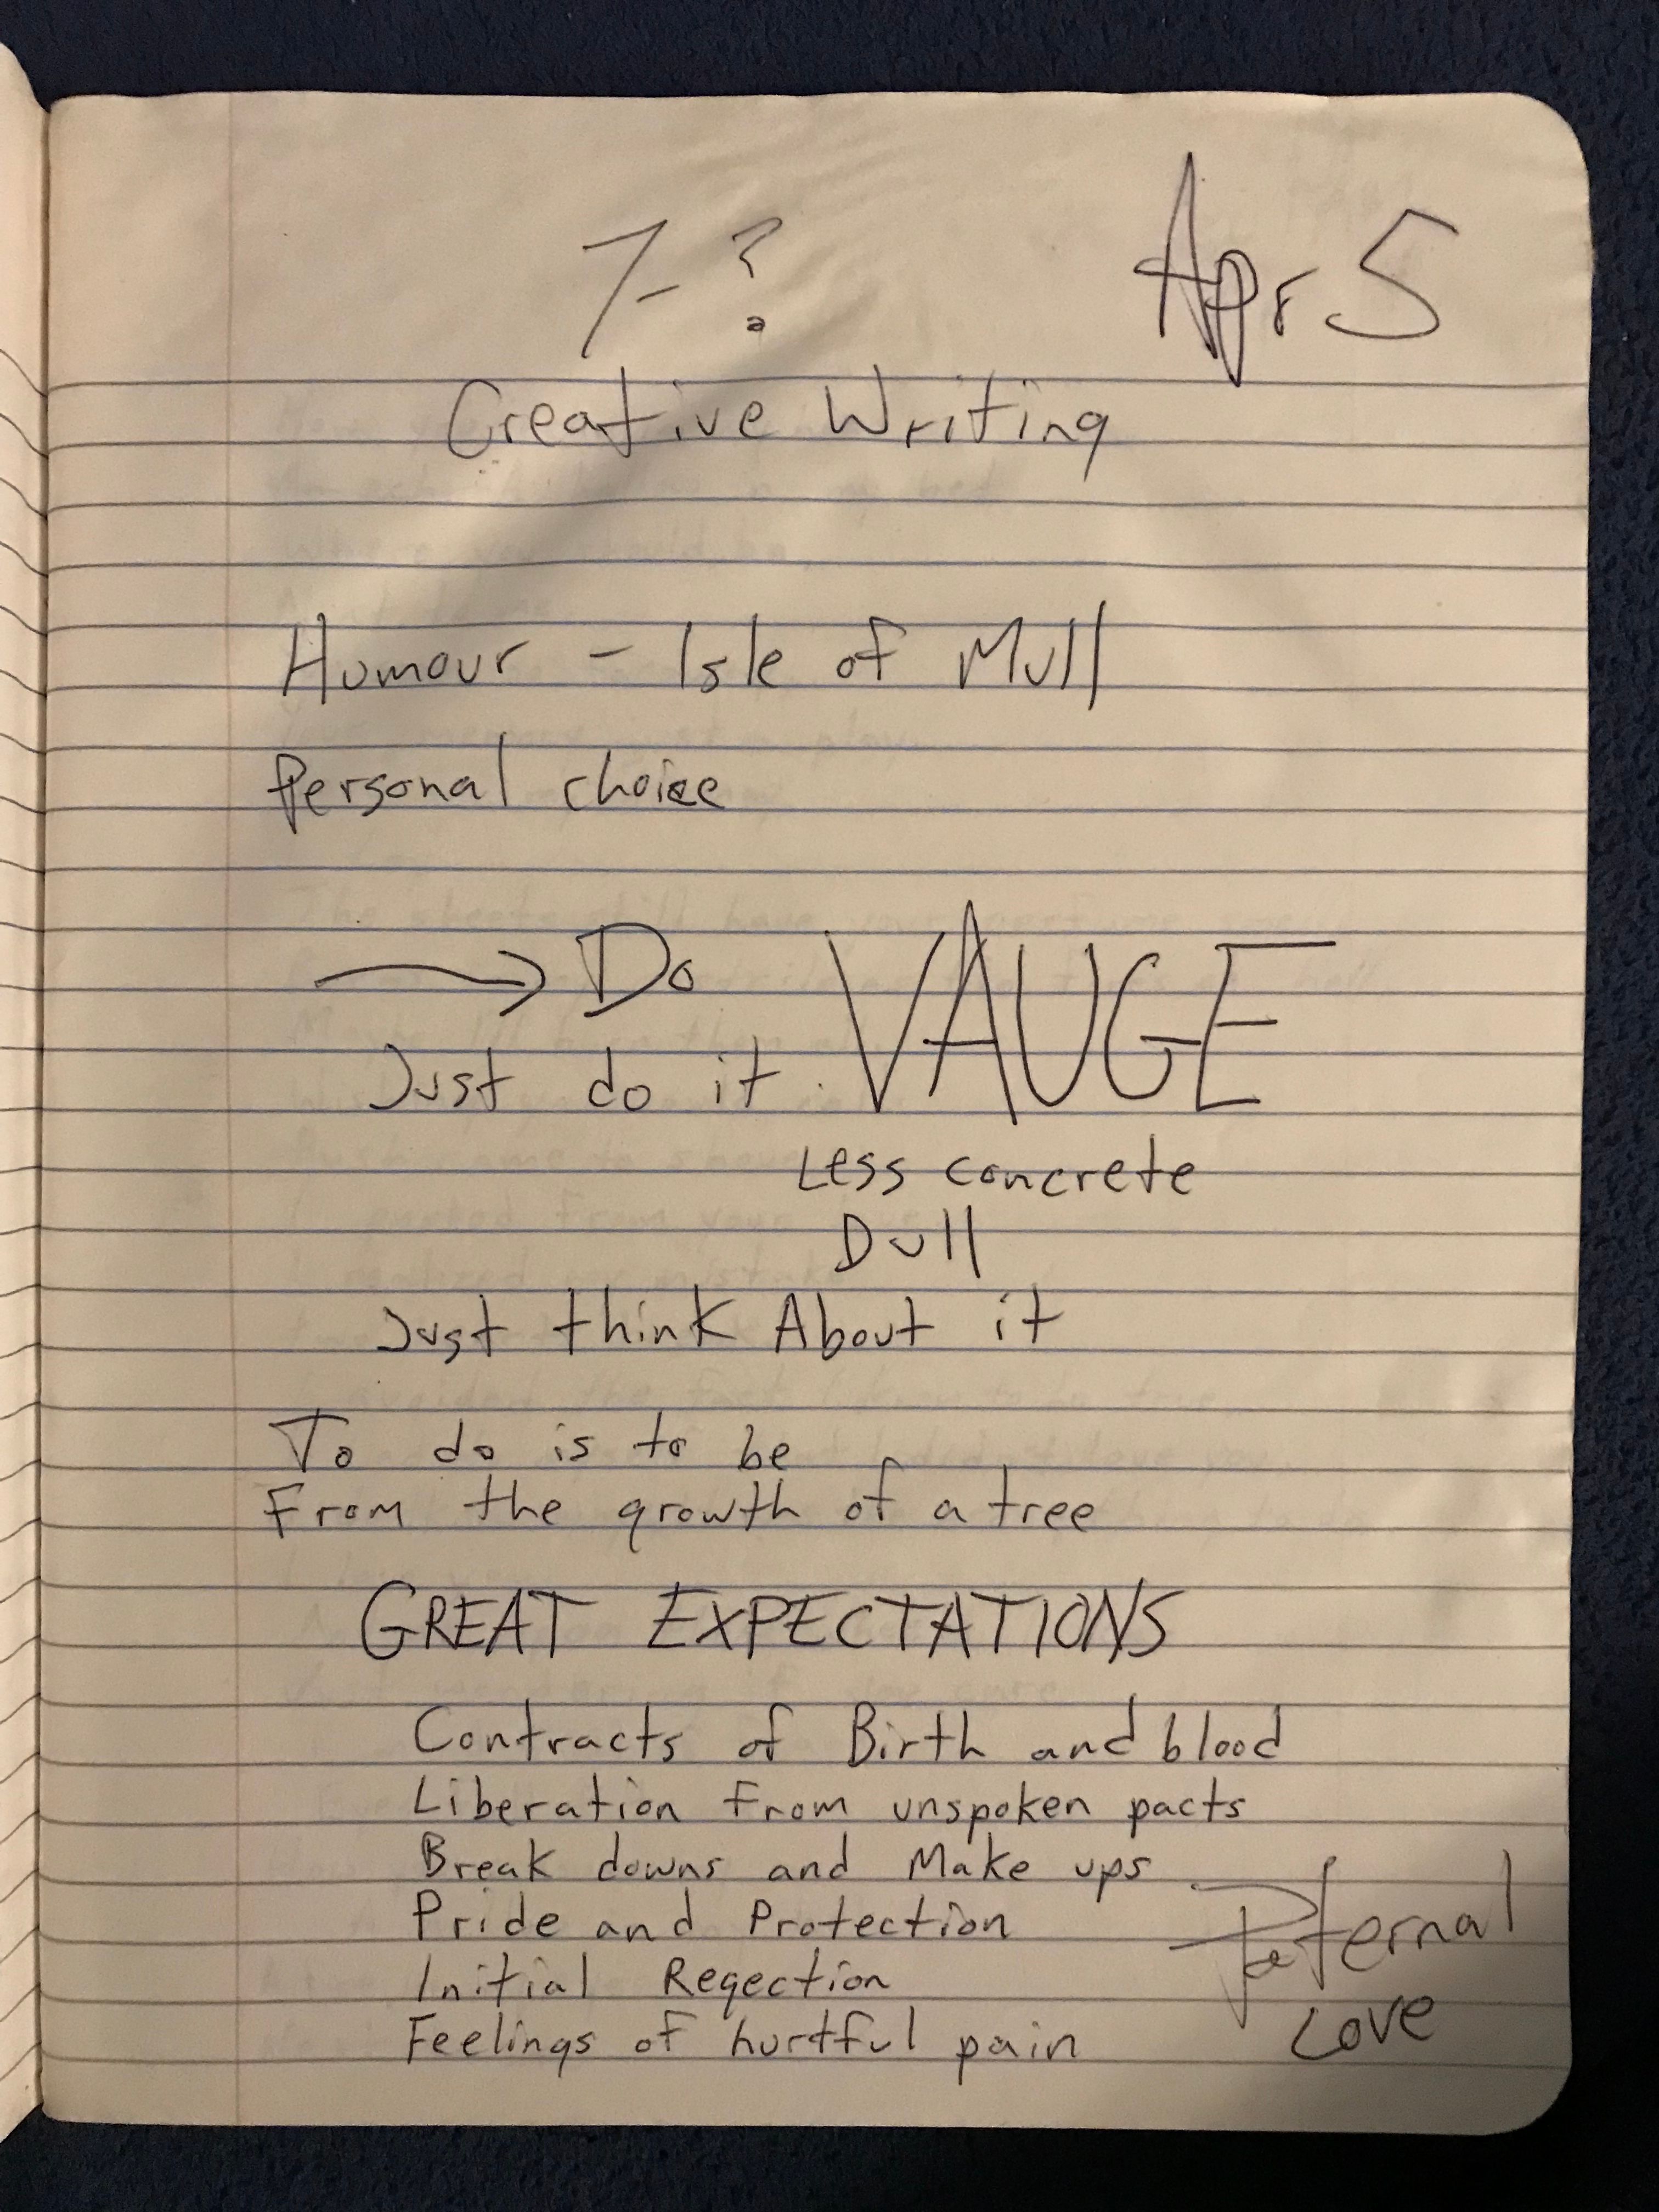 7-? Apr 5
Creative Writing
Humour - Isle of Mull
Personal choice
→ Do
Just do it. VAUGE
Less concrete
Dull
Just think About it
To do is to be
From the growth of a tree
GREAT EXPECTATIONS
Contracts of Birth and blood
Liberation from unspoken pacts
Break downs and Make ups
Pride and Protection
Initial Regection
Feelings of hurtful pain
Paternal
Love